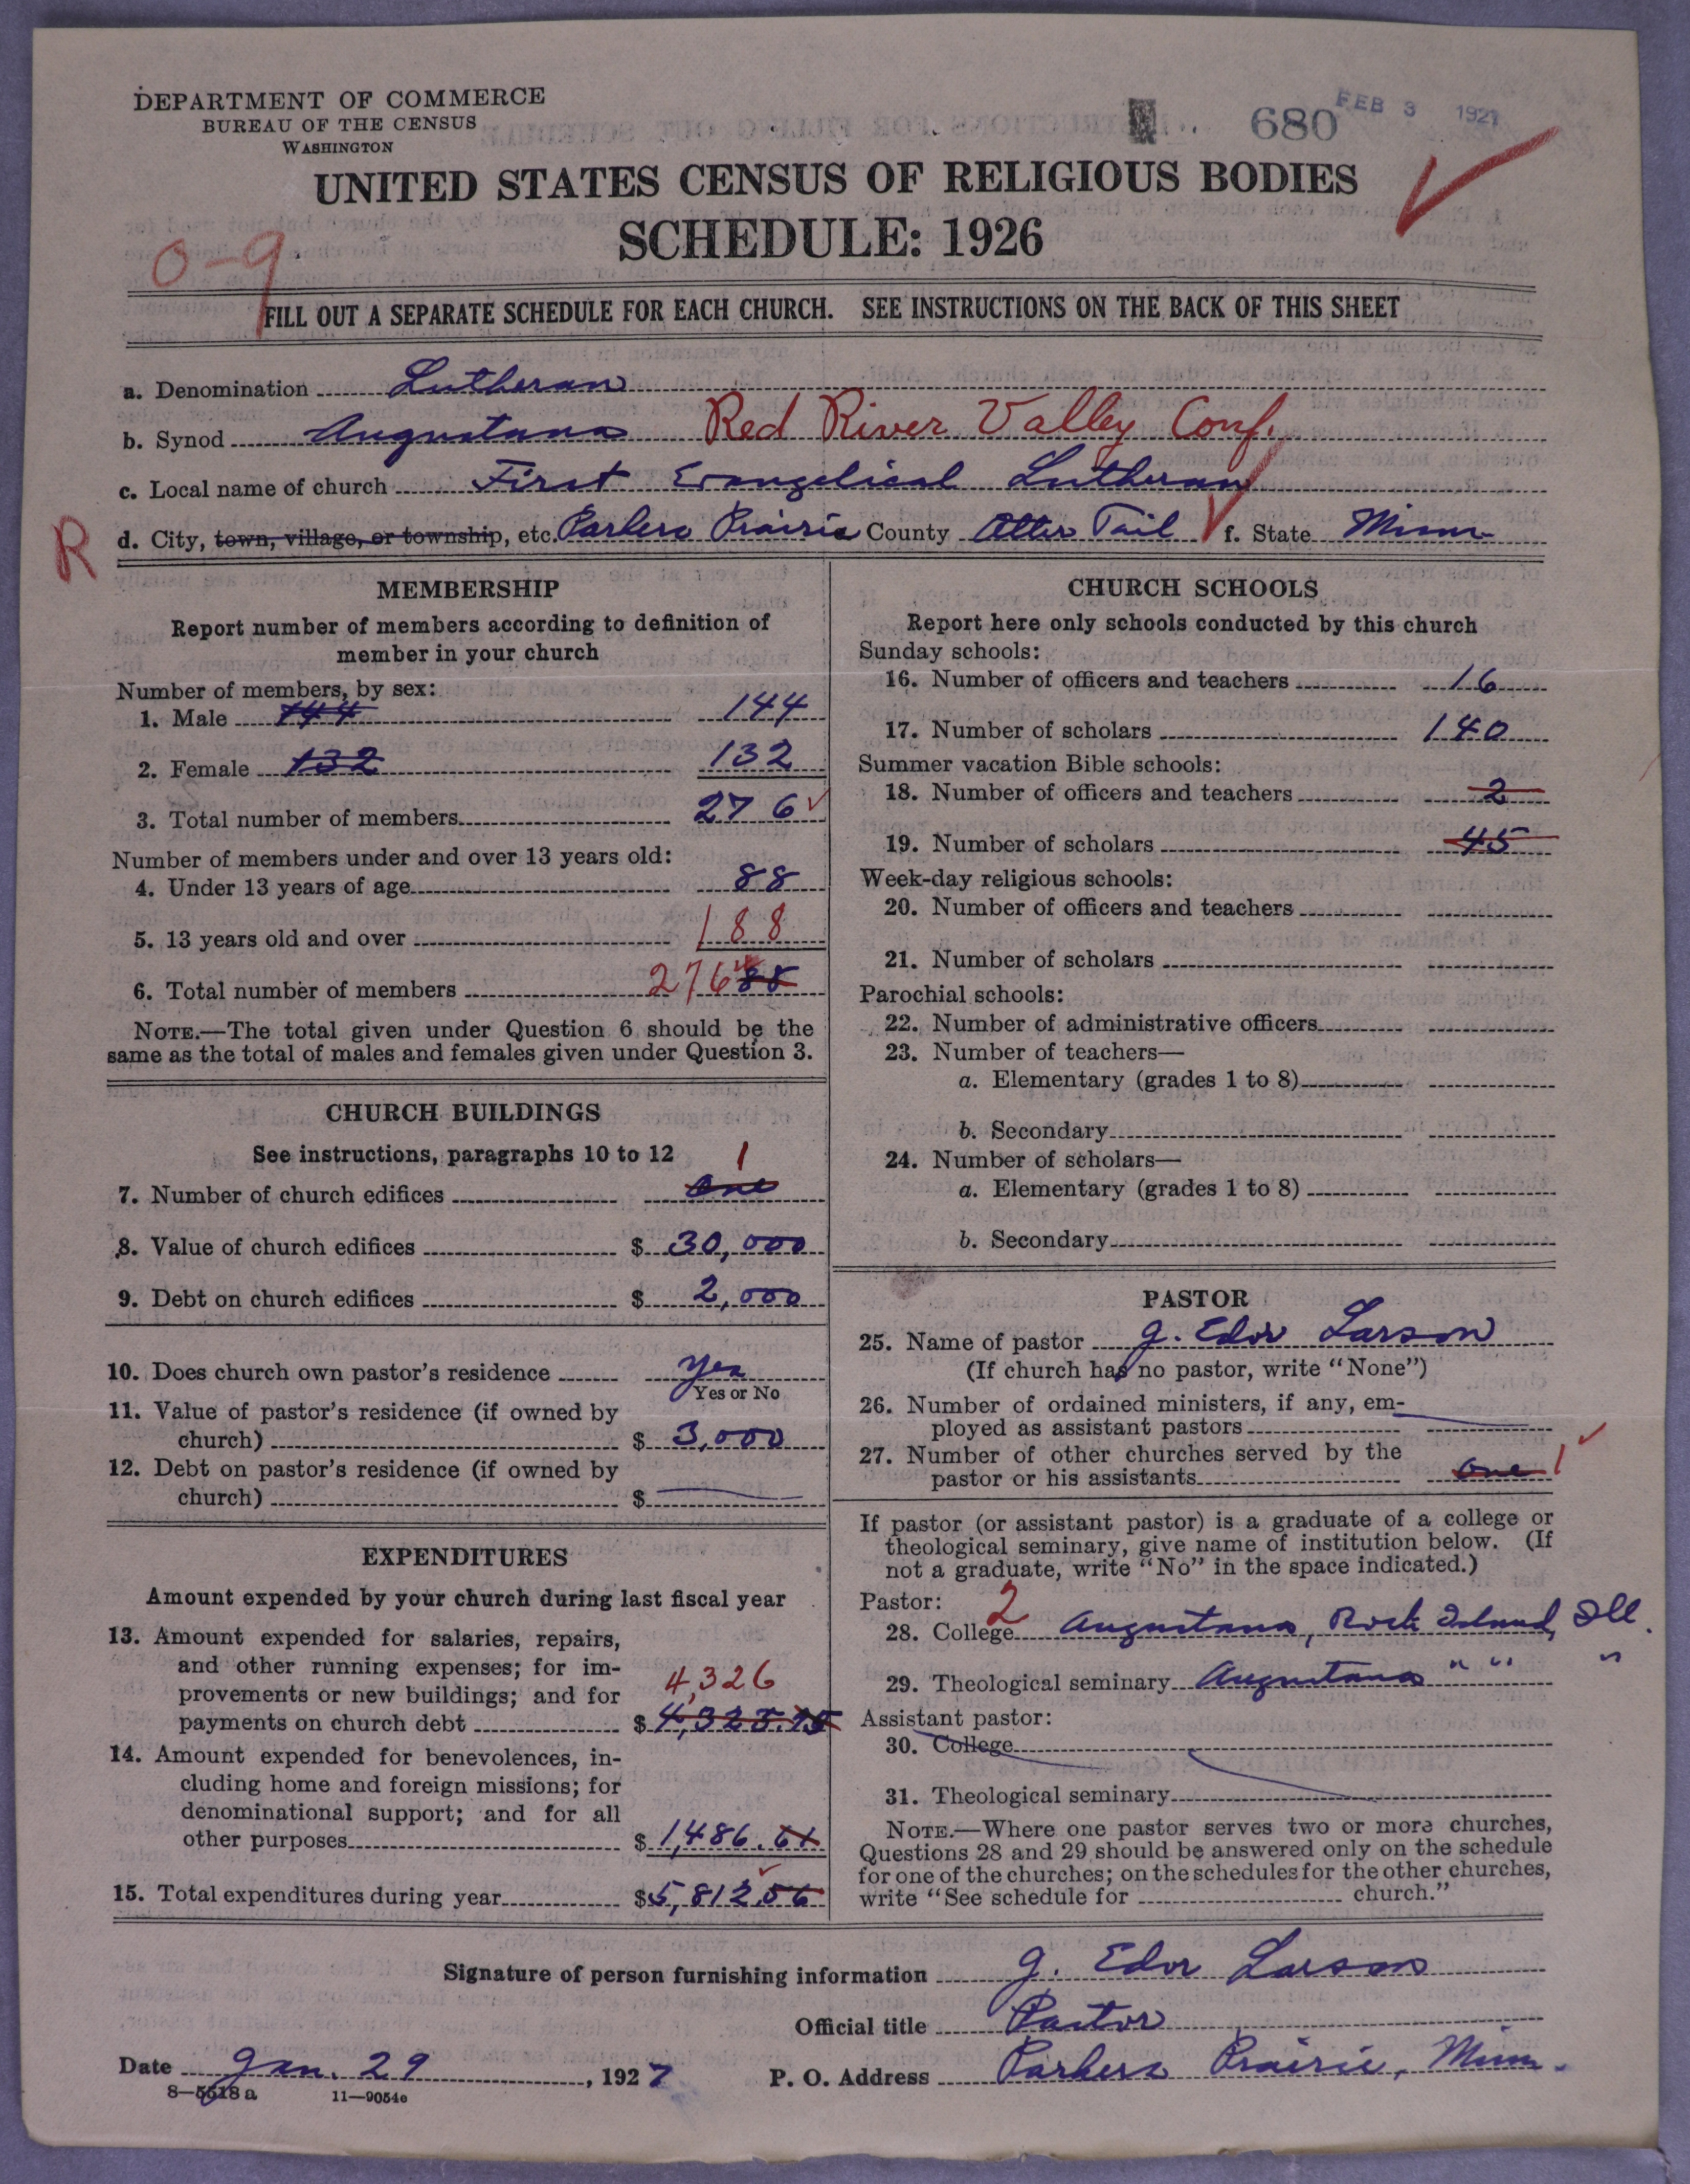 DEPARTMENT OF COMMERCE
BUREAU OF THE CENSUS
WASHINGTON
680 FEB 3 1927
UNITED STATES CENSUS OF RELIGIOUS BODIES
SCHEDULE: 1926
0-9
FILL OUT A SEPARATE SCHEDULE FOR EACH CHURCH. SEE INSTRUCTIONS ON THE BACK OF THIS SHEET
a. Denomination Lutheran
b. Synod Augustana Red River Valley Conf.
c. Local name of church First Evangelical Lutheran
R d. City, town, village, or township, etc. Parkers Prairie County Otter Tail f. State Minn.
MEMBERSHIP
Report number of members according to definition of
member in your church
Number of members, by sex:
1. Male 144 144
2. Female 132 132
3. Total number of members 276
Number of members under and over 13 years old:
4. Under 13 years of age 88
5. 13 years old and over 188
6. Total number of members 276 88
NOTE.—The total given under Question 6 should be the
same as the total of males and females given under Question 3.
CHURCH BUILDINGS
See instructions, paragraphs 10 to 12 1
7. Number of church edifices One
8. Value of church edifices $ 30,000
9. Debt on church edifices $ 2,000
10. Does church own pastor's residence Yes
Yes or No
11. Value of pastor's residence (if owned by
church) $ 3,000
12. Debt on pastor's residence (if owned by
church) $
EXPENDITURES
Amount expended by your church during last fiscal year
13. Amount expended for salaries, repairs,
and other running expenses; for im-
provements or new buildings; and for 4,326
payments on church debt $ 4,325.95
14. Amount expended for benevolences, in-
cluding home and foreign missions; for
denominational support; and for all
other purposes $ 1,486.61
15. Total expenditures during year $ 5,812.56
CHURCH SCHOOLS
Report here only schools conducted by this church
Sunday schools:
16. Number of officers and teachers 16
17. Number of scholars 140
Summer vacation Bible schools:
18. Number of officers and teachers 2
19. Number of scholars 45
Week-day religious schools:
20. Number of officers and teachers
21. Number of scholars
Parochial schools:
22. Number of administrative officers
23. Number of teachers—
a. Elementary (grades 1 to 8)
b. Secondary
24. Number of scholars—
a. Elementary (grades 1 to 8)
b. Secondary
PASTOR
25. Name of pastor G. Edor Larson
(If church has no pastor, write "None")
26. Number of ordained ministers, if any, em-
ployed as assistant pastors
27. Number of other churches served by the
pastor or his assistants One 1
If pastor (or assistant pastor) is a graduate of a college or
theological seminary, give name of institution below. (If
not a graduate, write "No" in the space indicated.)
Pastor: 2
28. College Augustana, Rock Island, Ill.
29. Theological seminary Augustana " " "
Assistant pastor:
30. College
31. Theological seminary
NOTE.—Where one pastor serves two or more churches,
Questions 28 and 29 should be answered only on the schedule
for one of the churches; on the schedules for the other churches,
write "See schedule for church."
Signature of person furnishing information G. Edor Larson
Official title Pastor
Date Jan. 29, 1927 P. O. Address Parkers Prairie, Minn.
8—5518 a 11—9054e